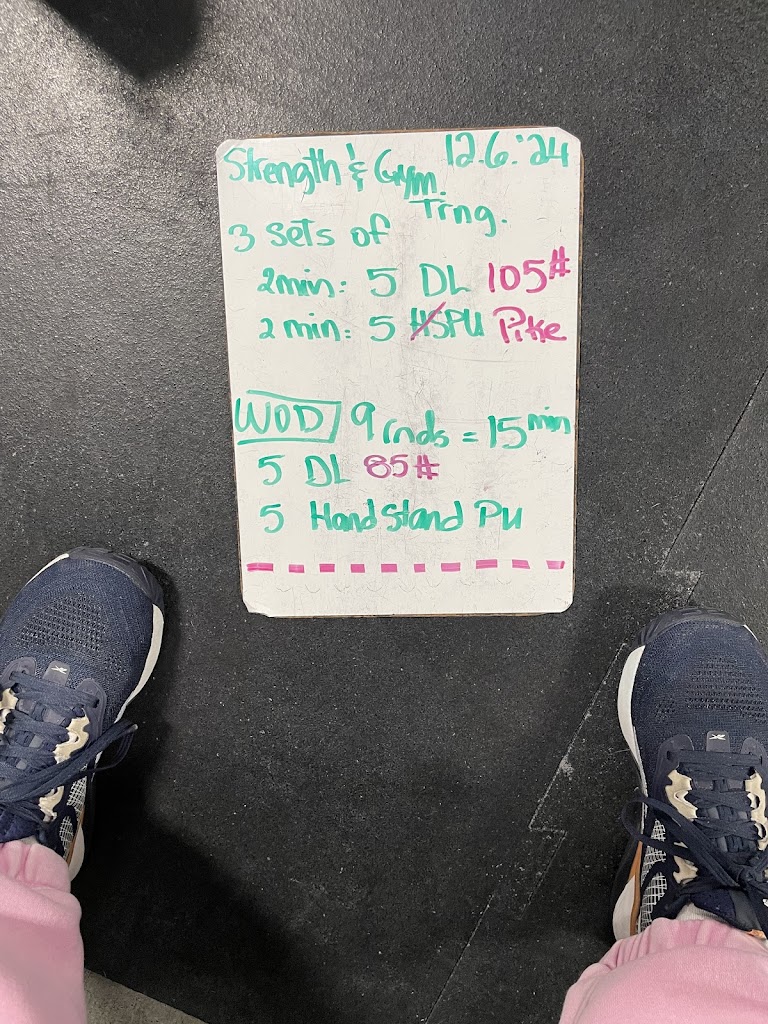 Strength & Gym. 12.6.'24
Trng.
3 sets of
2min: 5 DL 105#
2 min: 5 HSPU Pike
WOD 9 rnds = 15 min
5 DL 85#
5 Hand Stand PU